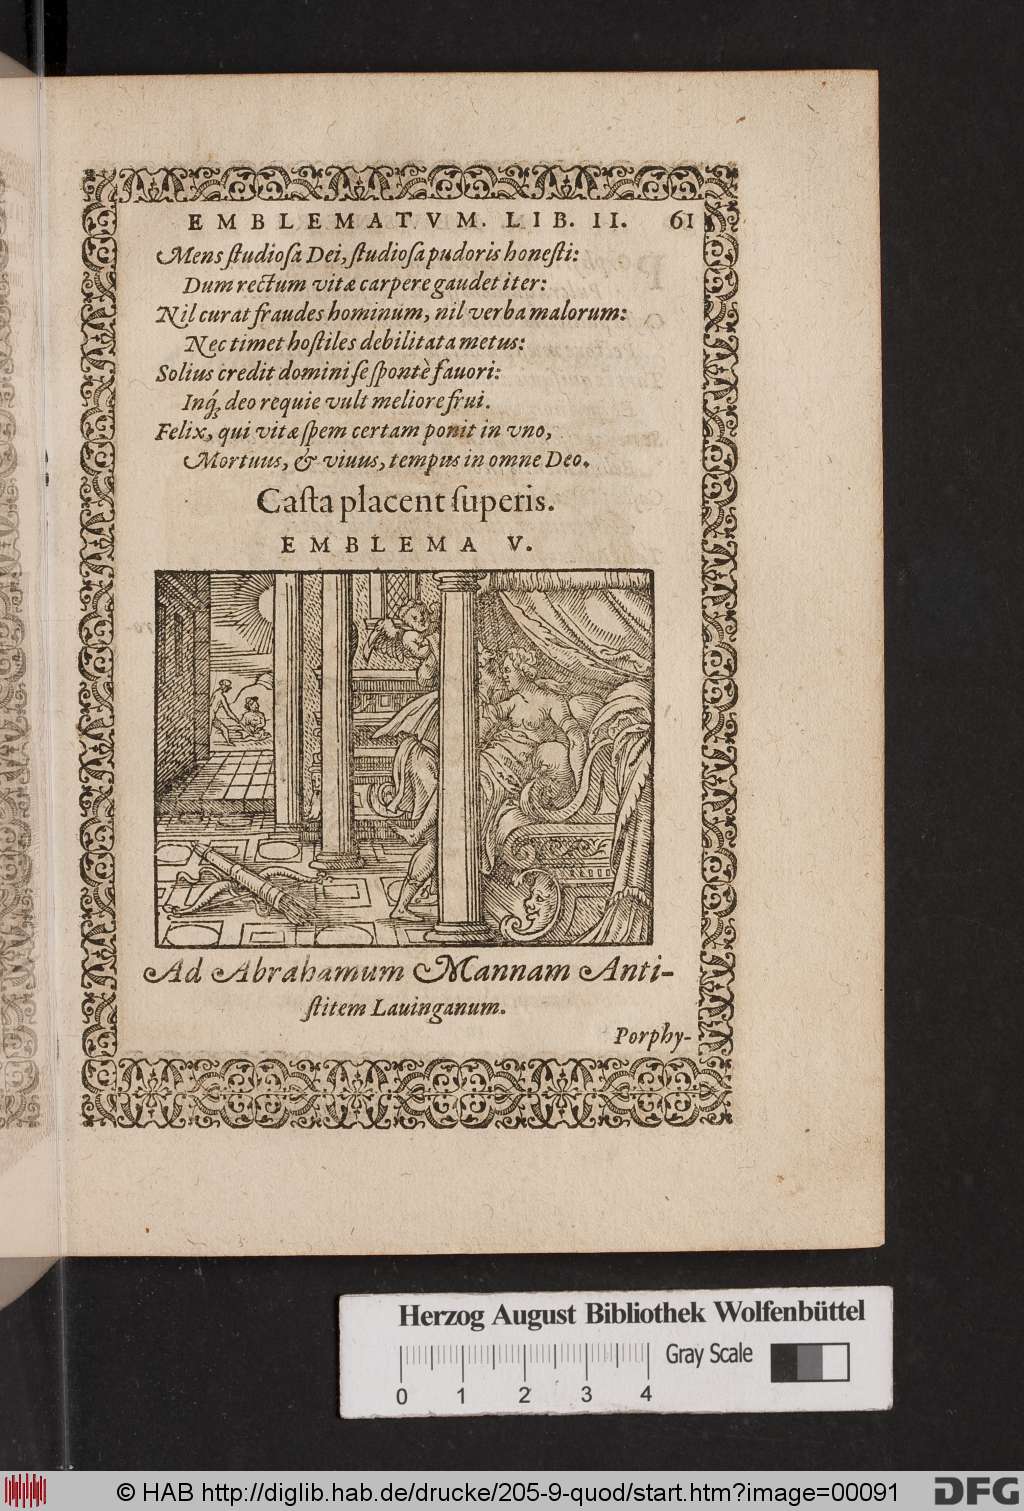 EMBLEMATVM. LIB. II. 61
Mens ſtudioſa Dei, ſtudioſa pudoris honeſti:
Dum rectum vitæ carpere gaudet iter:
Nil curat fraudes hominum, nil verba malorum:
Nec timet hoſtiles debilitata metus:
Solius credit domini ſe ſpontè fauori:
Inq́; deo requie vult meliore frui.
Felix, qui vitæ ſpem certam ponit in vno,
Mortuus, & viuus, tempus in omne Deo.
Caſta placent ſuperis.
EMBLEMA V.
Ad Abrahamum Mannam Anti-
ſtitem Lauinganum.
Porphy-
Herzog August Bibliothek Wolfenbüttel
Gray Scale
0 1 2 3 4
© HAB http://diglib.hab.de/drucke/205-9-quod/start.htm?image=00091
DFG